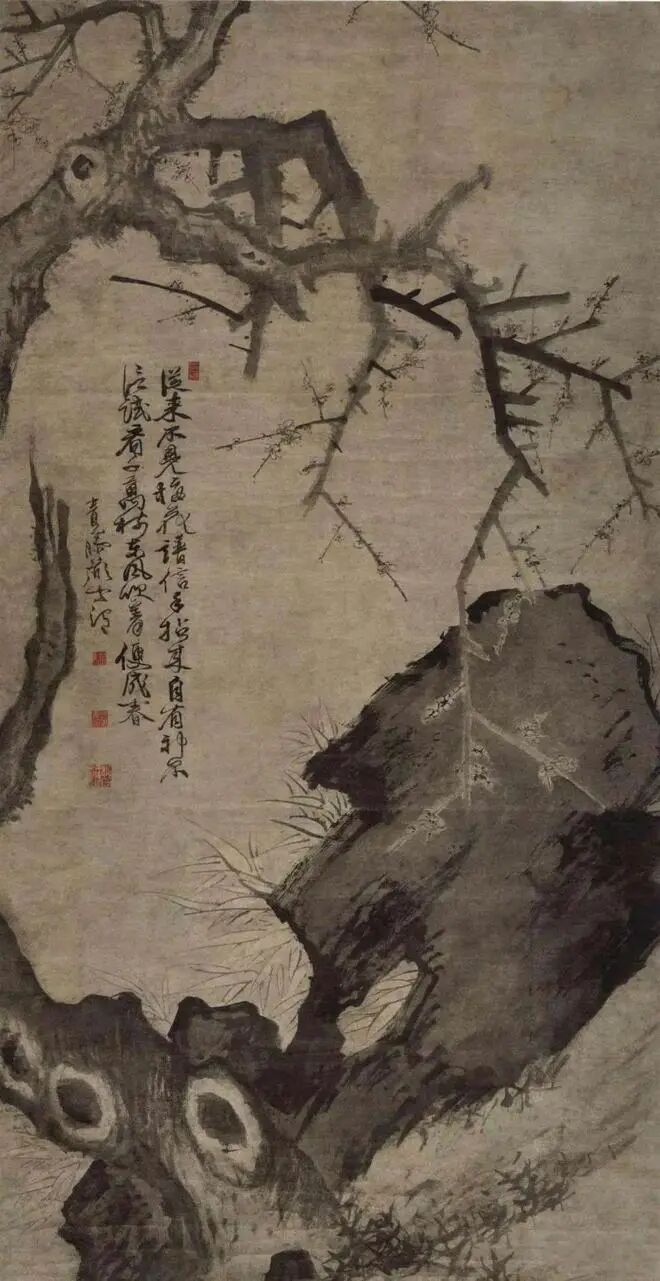 從來不見梅花譜信手拈來自有神不
信試看千萬樹東風吹著便成春
青藤道士渭